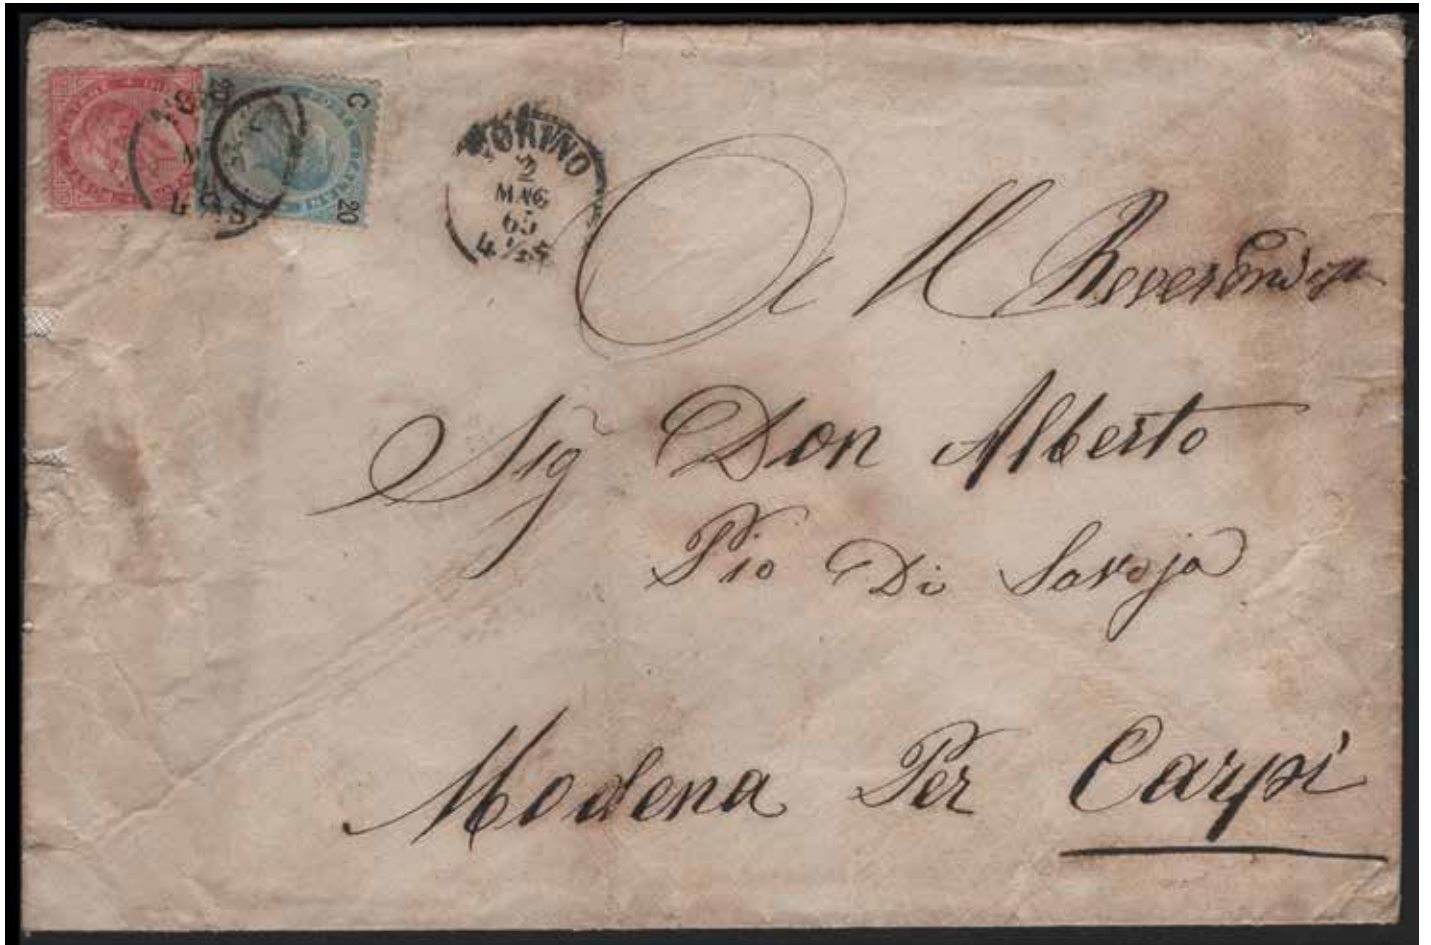 C 20
20
TORINO
2
MAG
65
4 ½ S
Al Reverendo
Sig Don Alberto
Pio Di Savoja
Modena Per Carpi